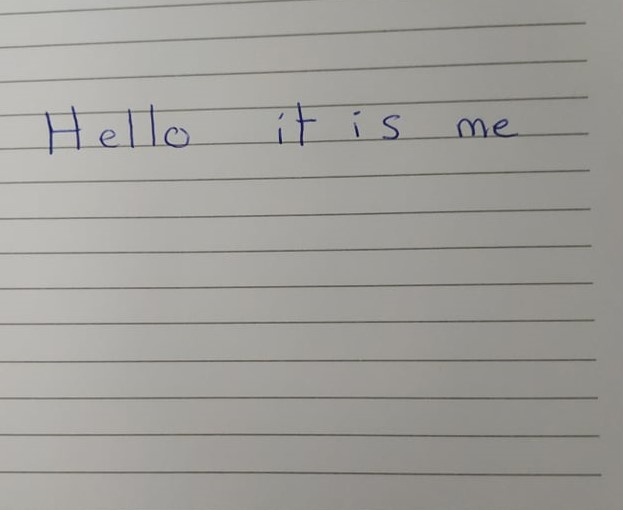 Hello it is me